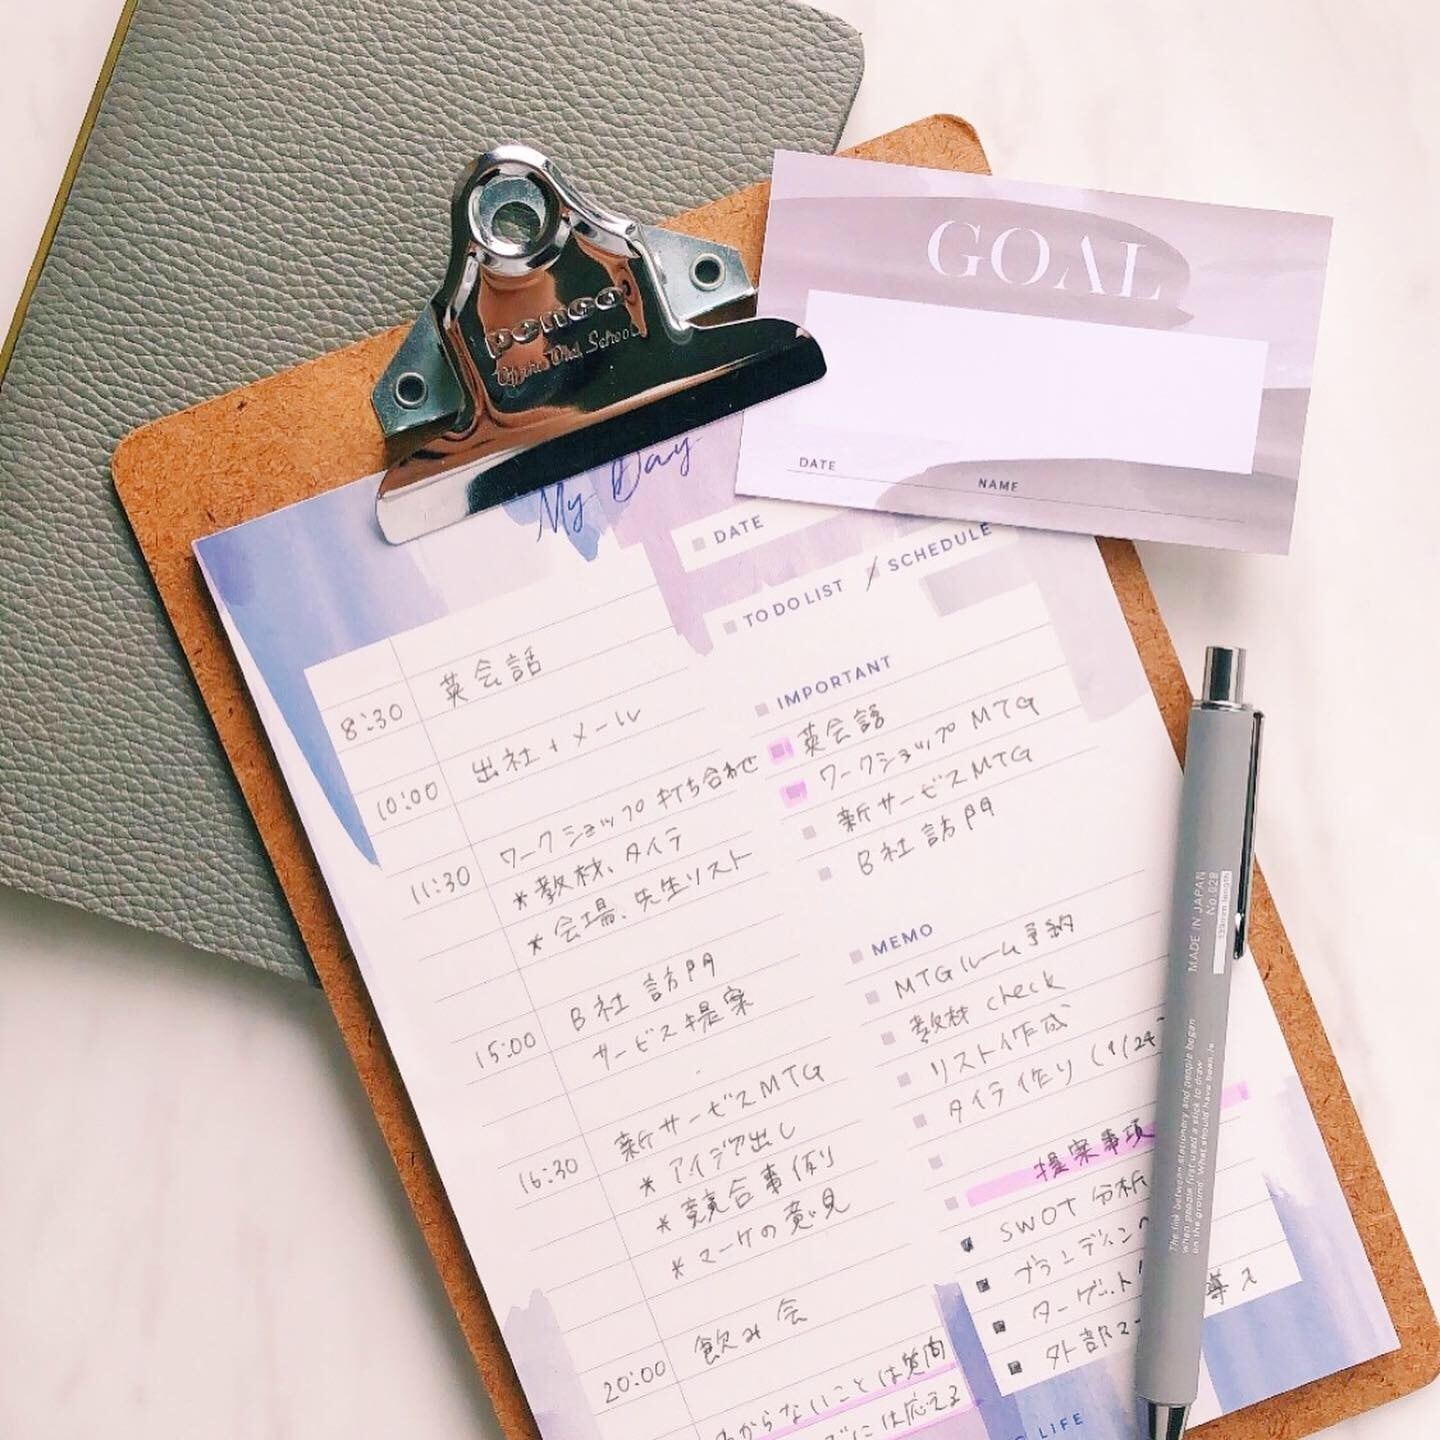 penco
My Day
GOAL
DATE
NAME
DATE
TO DO LIST
SCHEDULE
8:30 英会話
10:00 出社 + メール
11:30 ワークショップ打ち合わせ
* 教材、タイテ
* 会場、先生リスト
15:00 B社 訪問
サービス提案
16:30 新サービスMTG
* アイデア出し
* 競合事例
* マーケの意見
20:00 飲み会
わからないことは質問
には応える
IMPORTANT
英会話
ワークショップMTG
新サービスMTG
B社 訪問
MEMO
MTGルーム予約
教材 check
リスト作成
タイテ作り (9/24
提案事項
SWOT 分析
ブランディング
ターゲット
外部マー
LIFE
MADE IN JAPAN
No.028
The link between stationery and people began
when people first used a stick to draw
on the ground. What should have been is